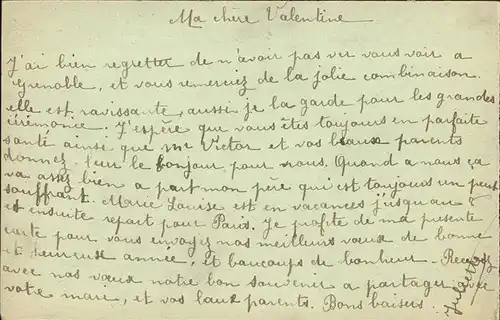 Ma chère Valentine
J'ai bien regretter de n'avoir pas vu vous voir a
Grenoble, et vous remerciez de la jolie combinaison.
elle est ravissante, aussi je la garde pour les grandes
cérémonie. J'espère que vous êtes toujours en parfaite
santé ainsi que Mr Victor et vos beaux parents
donnez leur le bonjour pour nous. Quand a nous ça
va assez bien a part mon père qui est toujours un peut
souffrant. Marie Louise est en vacances jusqu'au 8
et ensuite repart pour Paris. Je profite de ma présente
carte pour vous envoyez nos meilleurs vœux de bonne
et heureuse année, et beaucoups de bonheur. Recevez
avec nos vœux notre bon souvenir a partager avec
votre mari, et vos beaux parents. Bons baisers.
Juliette